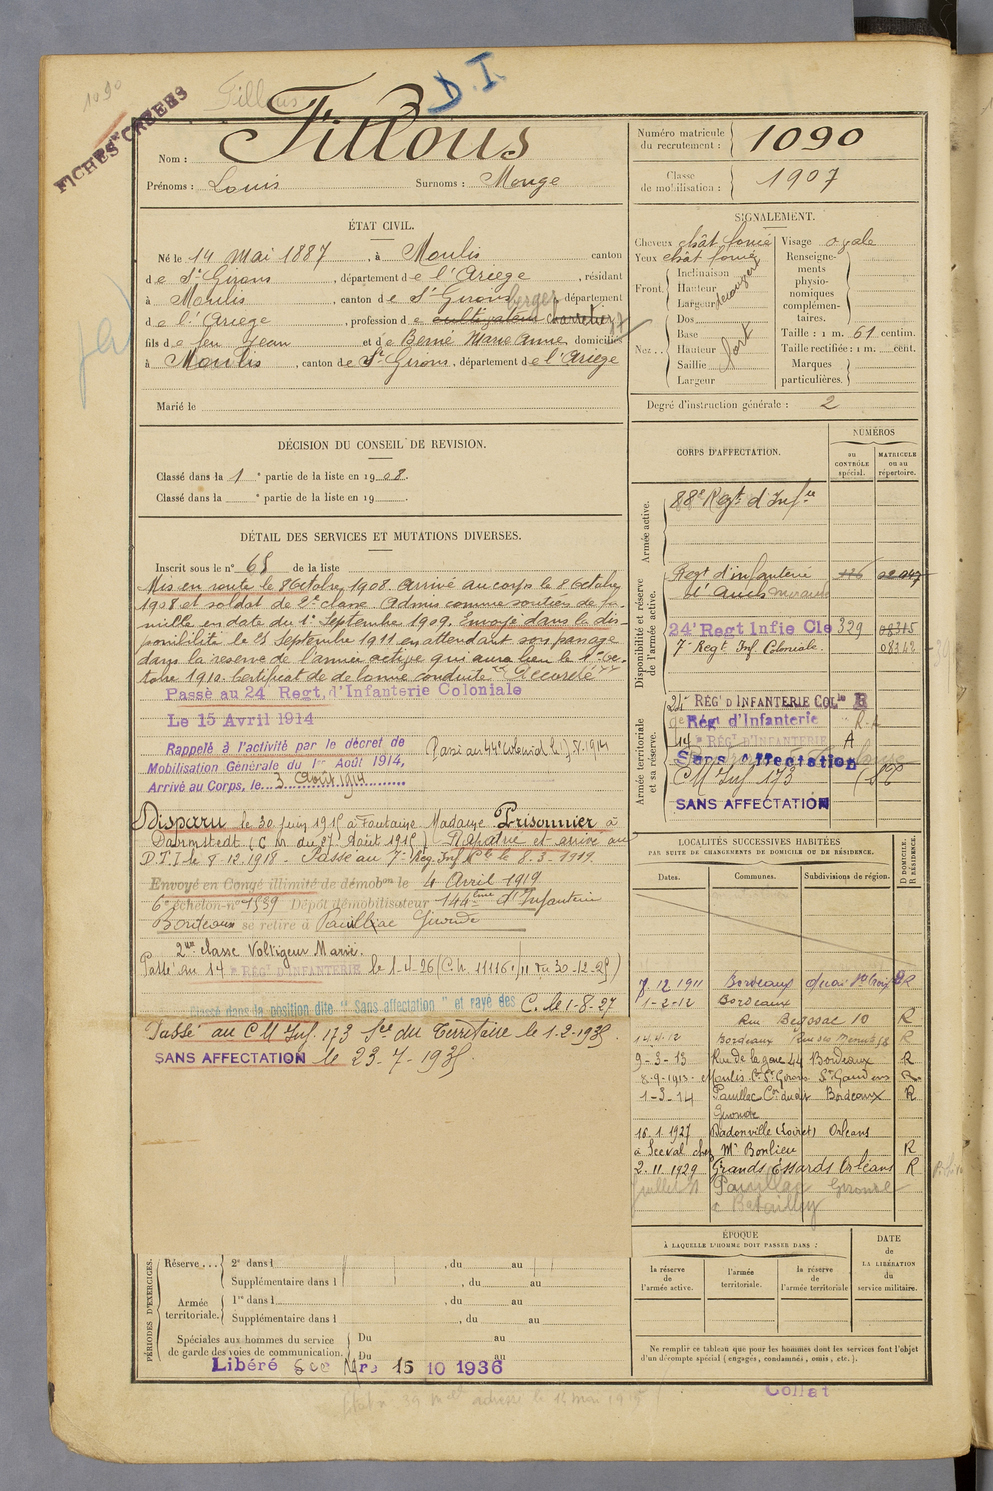 1090
Fillous
D.I.
FICHES CRÉÉES
Nom : Fillous
Prénoms : Louis Surnoms : Monge
Numéro matricule du recrutement : 1090
Classe de mobilisation : 1907
ÉTAT CIVIL.
Né le 14 Mai 1887, à Moulis canton
de St Girons, département de l'Ariège, résidant
à Moulis, canton de St Girons, département
berger
de l'Ariège, profession de cultivateur charretier
fils de feu Jean et de Berné Marie Anne domiciliés
à Moulis, canton de St Girons, département de l'Ariège
Marié le
SIGNALEMENT.
Cheveux chât foncé Visage ovale
Yeux chât foncé
Front. Inclinaison
Hauteur
Largeur
Nez.. Dos
Base
Hauteur
Saillie
Largeur
fort
Renseignements physionomiques complémentaires.
Taille : 1 m. 61 centim.
Taille rectifiée : 1 m. cent.
Marques particulières.
Degré d'instruction générale : 2
DÉCISION DU CONSEIL DE REVISION.
Classé dans la 1e partie de la liste en 1908.
Classé dans la e partie de la liste en 19 .
DÉTAIL DES SERVICES ET MUTATIONS DIVERSES.
Inscrit sous le n° 65 de la liste
Mis en route le 8 Octobre 1908. Arrivé au corps le 8 Octobre
1908 et soldat de 2e classe. Admis comme soutien de fa-
mille en date du 1er Septembre 1909. Envoyé dans la dis-
ponibilité le 25 Septembre 1911 en attendant son passage
dans la réserve de l'armée active qui aura lieu le 1er Oc-
tobre 1910. Certificat de bonne conduite "Accordé"
Passé au 24e Regt. d'Infanterie Coloniale
Le 15 Avril 1914
Rappelé à l'activité par le décret de
Mobilisation Générale du 1er Août 1914,
Arrivé au Corps, le 3 Août 1914
Disparu le 30 juin 1915 à Fontaine Madame Prisonnier à
Darmstedt (C.M. du 27 Août 1915) Rapatrié et arrivé au
D.T.I le 8.12.1918. Passé au 7e Rég. Inf Cle le 8.3.1919.
Envoyé en Congé illimité de démobon le 4 Avril 1919
6e échelon n° 1539 Dépôt démobilisateur 144ème d'Infanterie
Bordeaux se retire à Pauillac Gironde
2me classe Voltigeur Marié.
Passé au 14e RÉGt D'INFANTERIE le 1-4-26 (C.M. 11116 1/11 du 30-12-25)
Classé dans la position dite "Sans affectation" et rayé des C. le 1-8-27
Passé au C M Inf. 173 Sce du Territoire le 1.2.1935.
SANS AFFECTATION le 23.7.1935
CORPS D'AFFECTATION.
NUMÉROS
au CONTRÔLE spécial.
MATRICULE ou au répertoire.
Armée active.
88e Regt d'Infie
Disponibilité et réserve de l'armée active.
Regt d'infanterie
d'Auch Mirande
24e Regt Infie Cle 329 08315
7e Regt Inf Coloniale. 08342
Armée territoriale et sa réserve.
24e RÉGt D'INFANTERIE COLle
Régt d'Infanterie
14e RÉGt D'INFANTERIE A
Sans affectation
CM Inf 173
SANS AFFECTATION
LOCALITÉS SUCCESSIVES HABITÉES
PAR SUITE DE CHANGEMENTS DE DOMICILE OU DE RÉSIDENCE.
Dates. Communes. Subdivisions de région. D DOMICILE. R RÉSIDENCE.
7.12.1911 Bordeaux quai Ste Croix R
1-2-12 Bordeaux
Rue Begosac 10 R
14.4.12 Bordeaux Rue des Menuts
9-3-13 Rue de la gare 44 Bordeaux R
8-9-1913 Moulis Cn St Girons St Gaudens R
1-3-14 Pauillac Bordeaux R
Gironde
16.1.1927 Dadonville (Loiret) Orléans
chez Mr Bonlieu R
2.11.1929 Grands Essards Orléans R
juillet 31 Pauillac Gironde
à Batailley
PÉRIODES D'EXERCICES.
Réserve... 2e dans l , du au
Supplémentaire dans l , du au
Armée territoriale. 1re dans l , du au
Supplémentaire dans l , du au
Spéciales aux hommes du service de garde des voies de communication. Du au
Du au
Libéré Sce Mre 15 10 1936
ÉPOQUE
À LAQUELLE L'HOMME DOIT PASSER DANS :
la réserve de l'armée active.
l'armée territoriale.
la réserve de l'armée territoriale
DATE de LA LIBÉRATION du service militaire.
Ne remplir ce tableau que pour les hommes dont les services font l'objet
d'un décompte spécial (engagés, condamnés, omis, etc.).
Collat